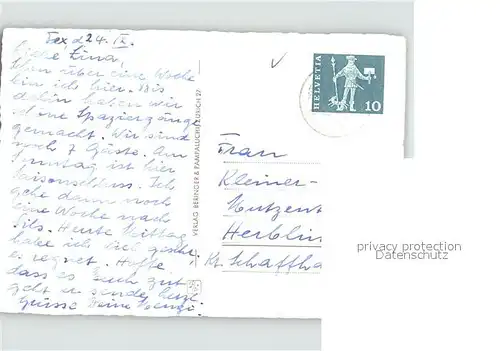 Fex, d 24. IX.
Liebe Lina,
Schon über eine Woche
bin ich hier. Bis
dahin haben wir
schöne Spaziergänge
gemacht. Wir sind
noch 7 Gäste. Am
Sonntag ist hier
Saisonschluss. Ich
gehe dann noch
eine Woche nach
Sils. Heute Mittag
habe ich viel
es regnet. Hoffe,
dass es Euch gut
geht u. sende herzl.
Grüsse Deine
VERLAG BERINGER & PAMPALUCHI ZÜRICH 27
HELVETIA
10
Frau
Kleiner-
Herblin
Kt. Schaffha
privacy protection
Datenschutz